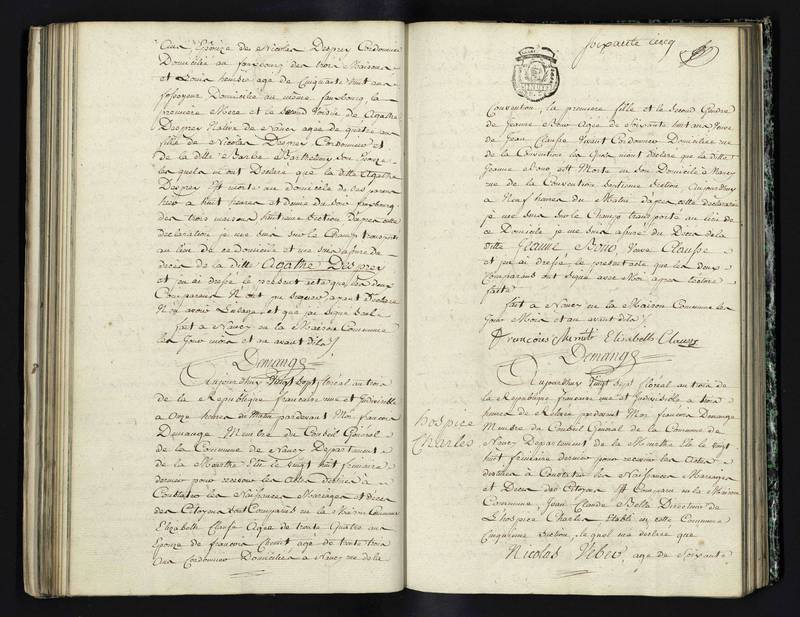 ans, Epouze de Nicolas Desprez Cordonnier
Domiciliée au fauxbourg des trois Maisons
et Louis agé de Cinquante huit ans
fossoyeur Domicilié au même fauxbourg, la
première Mere et le second Voisin de Agathe
Desprez Native de Nancy agée de quatre ans
fille de Nicolas Desprez Cordonnier et
de la ditte Barbe Barthelemy son Epouze
les quels m'ont Declaré que la ditte Agathe
Desprez Est morte au domicile de ses pere
hier a huit heures et demie du soir fauxbourg
des trois maisons huitieme Section d'après cette
declaration je me suis sur le Champ transporté
au lieu de ce domicile et me suis assuré de
décès de la ditte Agathe Desprez
et j'en ai dressé le présent acte que les deux
Comparans N'ont pu signer ayant declaré
N'en avoir L'usage et que j'ai signé seul
fait a Nancy en la Maison Commune
les Jour mois et an avant dits /.
Demange
Aujourdhuy Vingt Sept floréal an trois
de la République francaise une et Indivisible
a Onze heures du Matin pardevant Moi francois
Demange Membre du Conseil Général
de la Commune de Nancy Département
de la Meurthe Elu le vingt huit frimaire
dernier pour recevoir les actes destinés a
Constater les Naissances Mariages et décès
des Citoyens sont Comparus en la Maison Commune
Elizabeth Clausse Agée de trente Quatre ans
Epouze de francois agé de trente trois
ans Cordonnier Domiciliés a Nancy rue de la
soixante cinq
Convention, la première fille et le second Gendre
de Jeanne Bono Agée de Soixante huit ans Veuve
de Jean Clausse Vivant Cordonnier Domiciliée rue
de la Convention les Quels mont declaré que la ditte
Jeanne Bono est Morte en son Domicile a Nancy
rue de la Convention Section Aujourdhuy
a Neuf heures du Matin d'après cette declaration
je me suis sur le Champ transporté au lieu de
ce Domicile je me suis assuré du Deces de la
ditte Jeanne Bono Veuve Clausse
et j'en ai dressé le présent acte que les deux
Comparans ont signé avec Moi apres lecture
faite
fait a Nancy en la Maison Commune les
Jour Mois et an avant dits /.
francois Elizabeth Clausse
Demange
Aujourdhuy Vingt Sept floréal an trois de
la République francaise une et Indivisible a trois
heures de Relevée pardevant Moi francois Demange
Membre du Conseil Général de la Commune de
Nancy Departement de la Meurthe Elu le vingt
huit frimaire dernier pour recevoir les Actes
destinés a Constater les Naissances Mariages
et Deces des Citoyens Est Comparu en la Maison
Commune Jean Claude Belle Directeur de
L'hospice Charles Etabli en cette Commune
Cinquième Section, le quel ma declaré que
Nicolas agé de Soixante
hospice
Charles